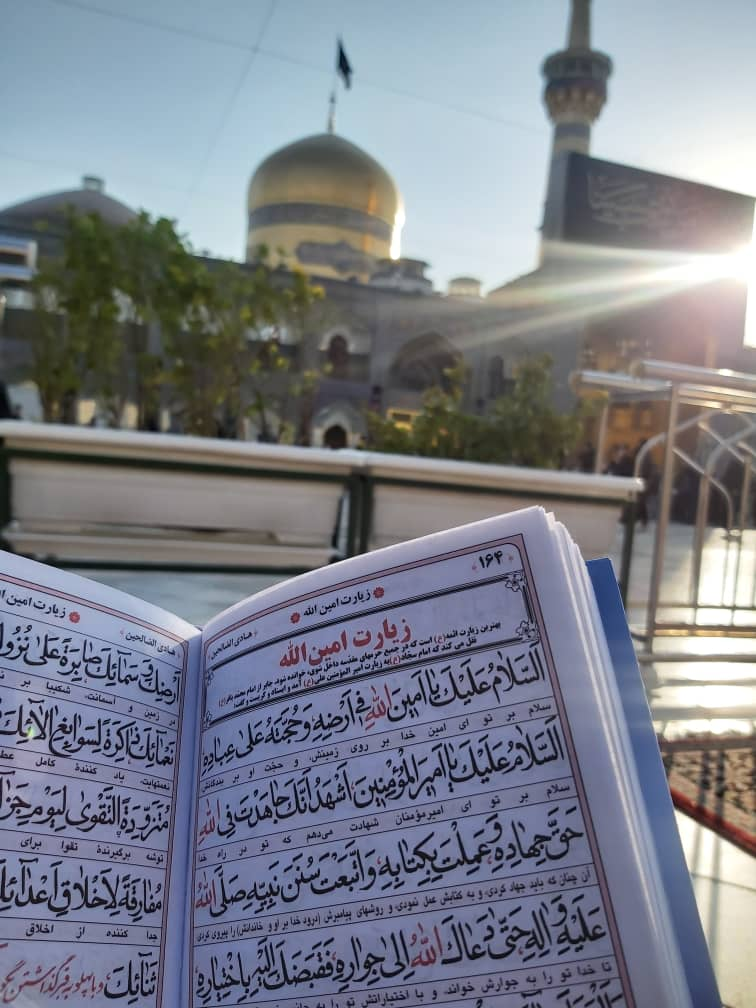 ۱۶۴
زیارت امین الله
هادی الصالحین
زیارت امین الله
بهترین زیارت ائمه(ع) است که در جمیع حرمهای مقدسه داخل شوی، خوانده شود، جابر از امام محمد باقر(ع)
نقل می کند که امام سجّاد(ع) به زیارت امیر المؤمنین علی(ع) آمد و ایستاد و گریست و گفت:
اَلسَّلامُ عَلَیْكَ یا اَمینَ اللهِ فی اَرْضِهِ وَ حُجَّتَهُ عَلی عِبادِهِ
سلام بر تو ای امین خدا بر روی زمینش، و حجّت او بر بندگانش
اَلسَّلامُ عَلَیْكَ یا اَمیرَ الْمُؤْمِنینَ، اَشْهَدُ اَنَّكَ جاهَدْتَ فِی اللهِ
سلام بر تو ای امیرمؤمنان شهادت می‌دهم که تو در راه خدا
حَقَّ جِهادِهِ وَ عَمِلْتَ بِکِتابِهِ وَ اتَّبَعْتَ سُنَنَ نَبِیِّهِ صَلَّی اللهُ
آن چنان که باید جهاد کردی، و به کتابش عمل نمودی، و روشهای پیامبرش (درود خدا بر او و خاندانش) را پیروی کردی
عَلَیْهِ وَ الِهِ، حَتّی دَعاكَ اللهُ اِلی جِوارِهِ، فَقَبَضَكَ اِلَیْهِ بِاخْتِیارِهِ
تا خدا تو را به جوارش خواند، و با اختیارش تو را به
زیارت امین الله
هادی الصالحین
اَرْضِكَ وَ سَمائِكَ، صابِرَةً عَلی نُزُولِ
در زمین و آسمانت، شکیبا بر
نَعْمائِكَ، ذاکِرَةً لِسَوابِغِ الائِكَ
نعمتهایت، یاد کنندۀ کامل
مُتَزَوِّدَةً التَّقْوی لِیَوْمِ جَزائِكَ
توشه برگیرندۀ تقوا برای
مُفارِقَةً لِاَخْلاقِ اَعْدائِكَ
جدا کننده از اخلاق
ثَنائِكَ.